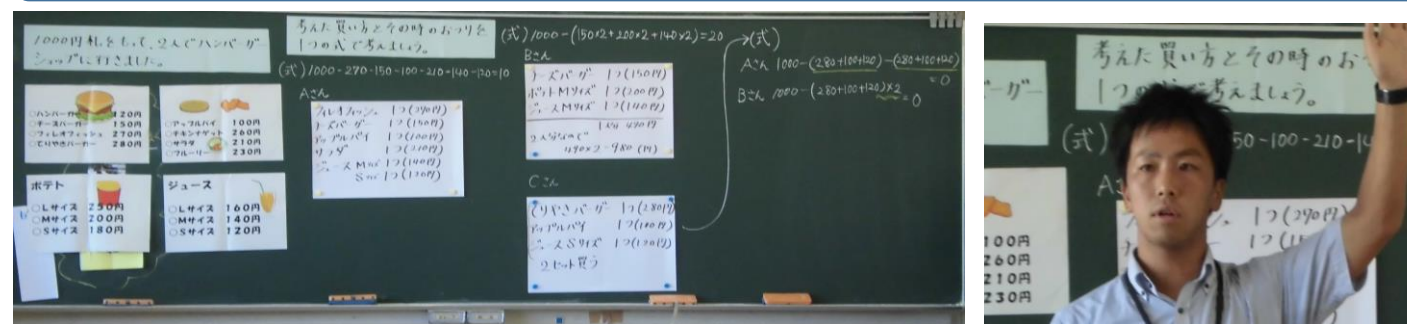 1000円札をもって、2人でハンバーガー
ショップに行きました。
○ハンバーガー 120円
○チーズバーガー 150円
○フィレオフィッシュ 270円
○てりやきバーガー 280円
○アップルパイ 100円
○チキンナゲット 260円
○サラダ 210円
○フルーリー 230円
ポテト
○Lサイズ 250円
○Mサイズ 200円
○Sサイズ 180円
ジュース
○Lサイズ 160円
○Mサイズ 140円
○Sサイズ 120円
考えた買い方とその時のおつりを
1つの式で考えましょう。
(式) 1000-270-150-100-210-140-120=10
Aさん
フィレオフィッシュ 1つ(270円)
チーズバーガー 1つ(150円)
アップルパイ 1つ(100円)
サラダ 1つ(210円)
ジュース Mサイズ 1つ(140円)
Sサイズ 1つ(120円)
(式) 1000-(150×2+200×2+140×2)=20
Bさん
チーズバーガー 1つ(150円)
ポテトMサイズ 1つ(200円)
ジュースMサイズ 1つ(140円)
1人分 490円
2人分なので
490×2=980(円)
Cさん
てりやきバーガー 1つ(280円)
アップルパイ 1つ(100円)
ジュースSサイズ 1つ(120円)
2セット買う
→(式)
Aさん 1000-(280+100+120)-(280+100+120)
=0
Bさん 1000-(280+100+120)×2
=0
考えた買い方とその時のお
1つの式で考えましょう。
(式)
50-100-210-14
A
1つ(270円)
100円
260円
210円
230円